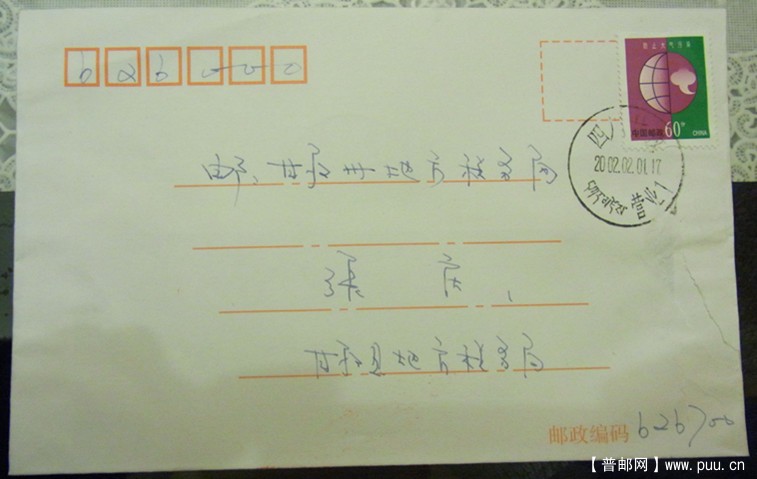 626000
防止大气污染
中国邮政 60分 CHINA
四川
2002.02.01.17
营业1
邮:甘孜州地方税务局
张 庆
甘孜县地方税务局
邮政编码 626700
【普邮网】www.puu.cn